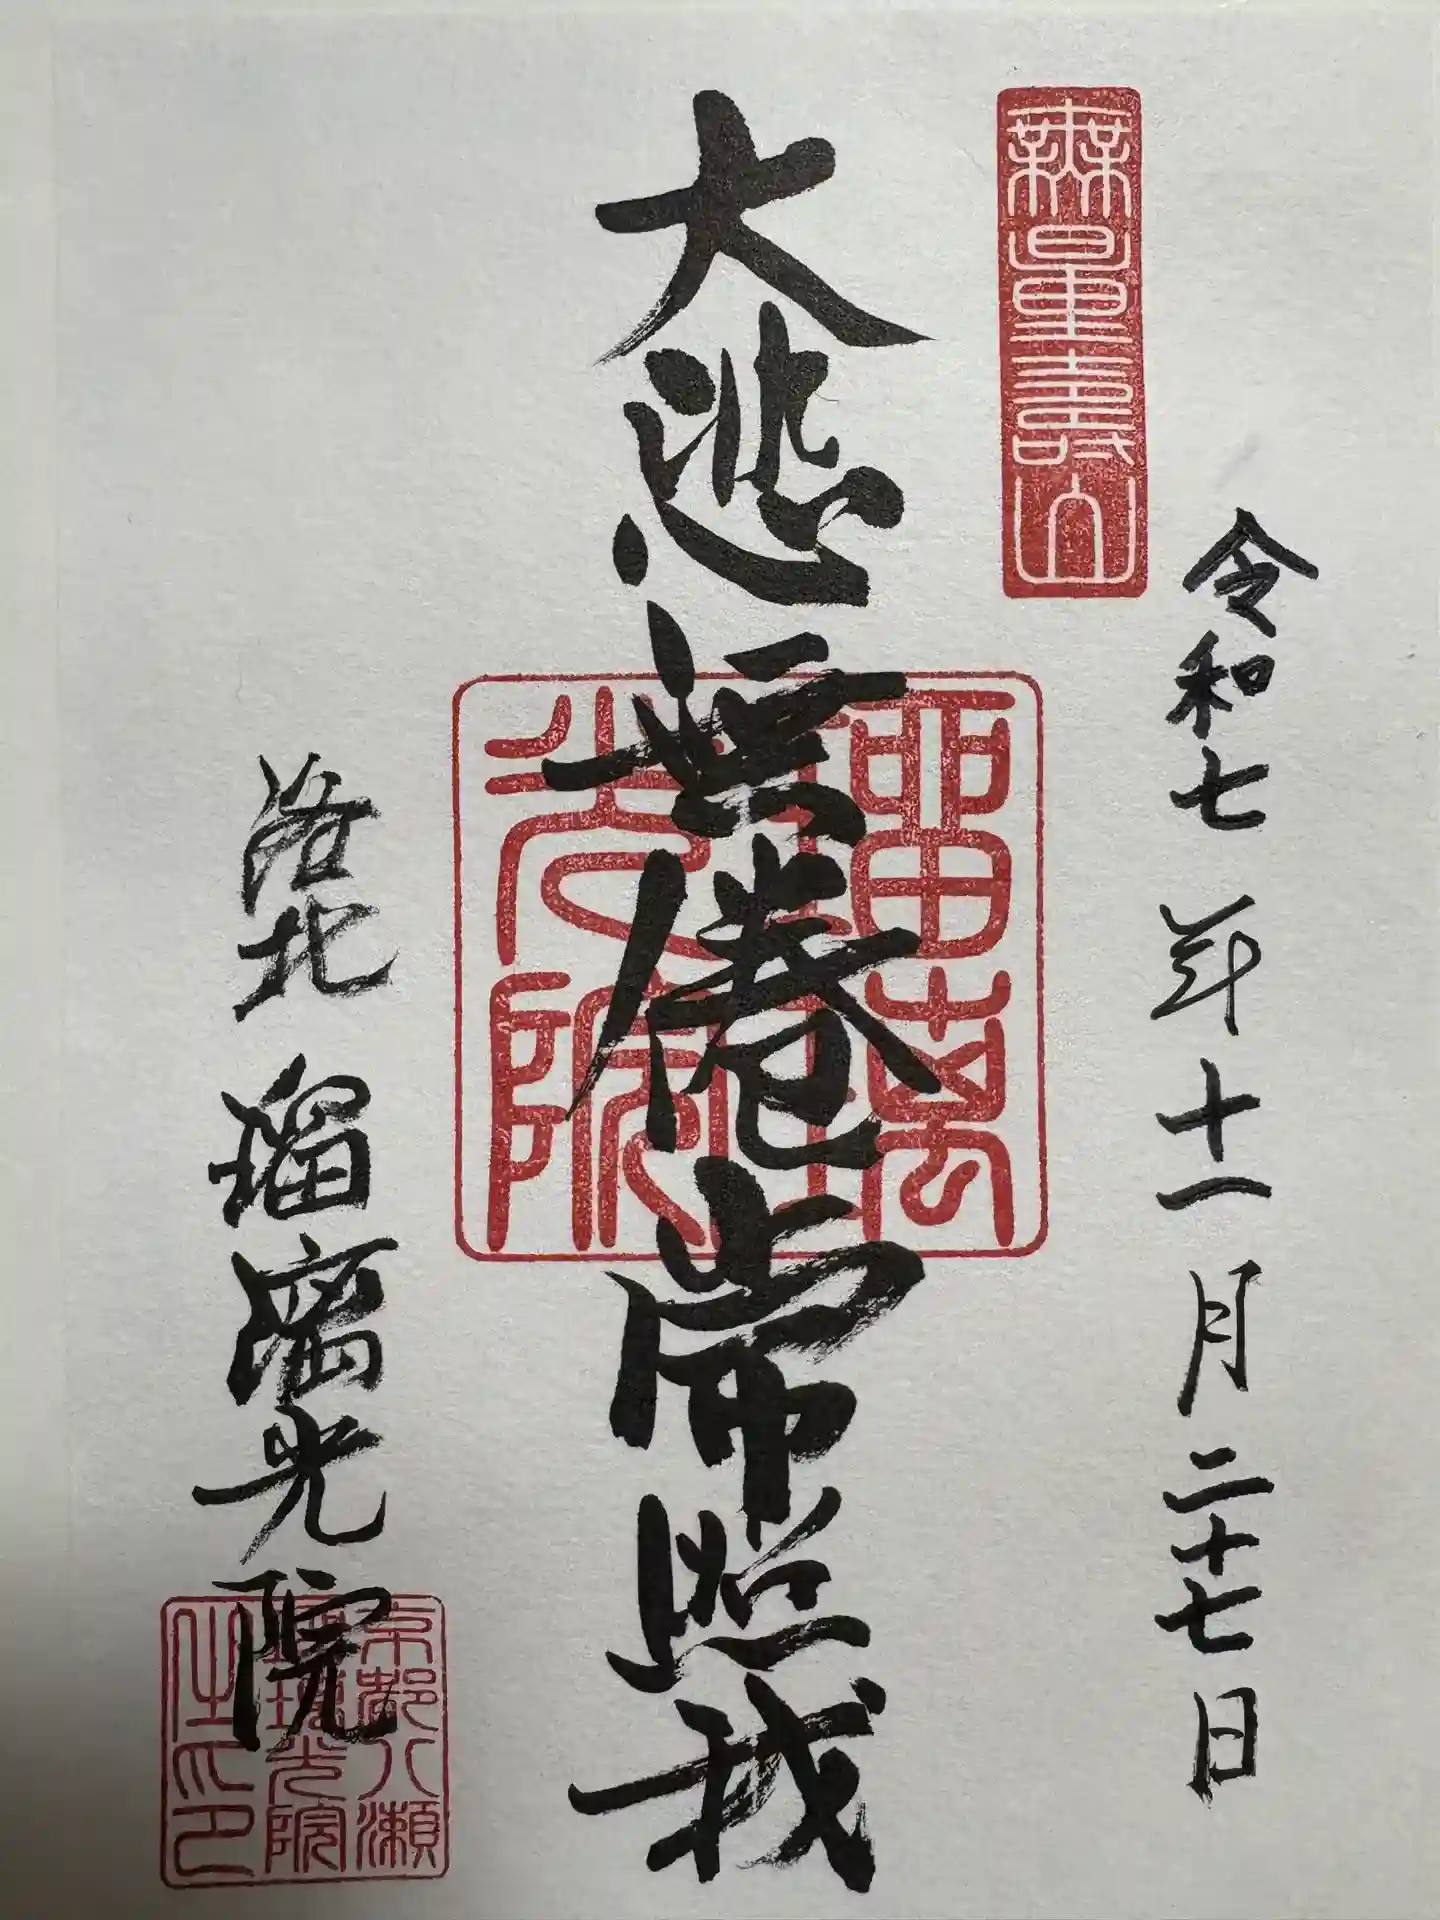 令和七年十一月二十七日
無量壽山
大悲無倦常照我
瑠璃
光院
洛北 瑠璃光院
京都八瀬
瑠璃光院
之印